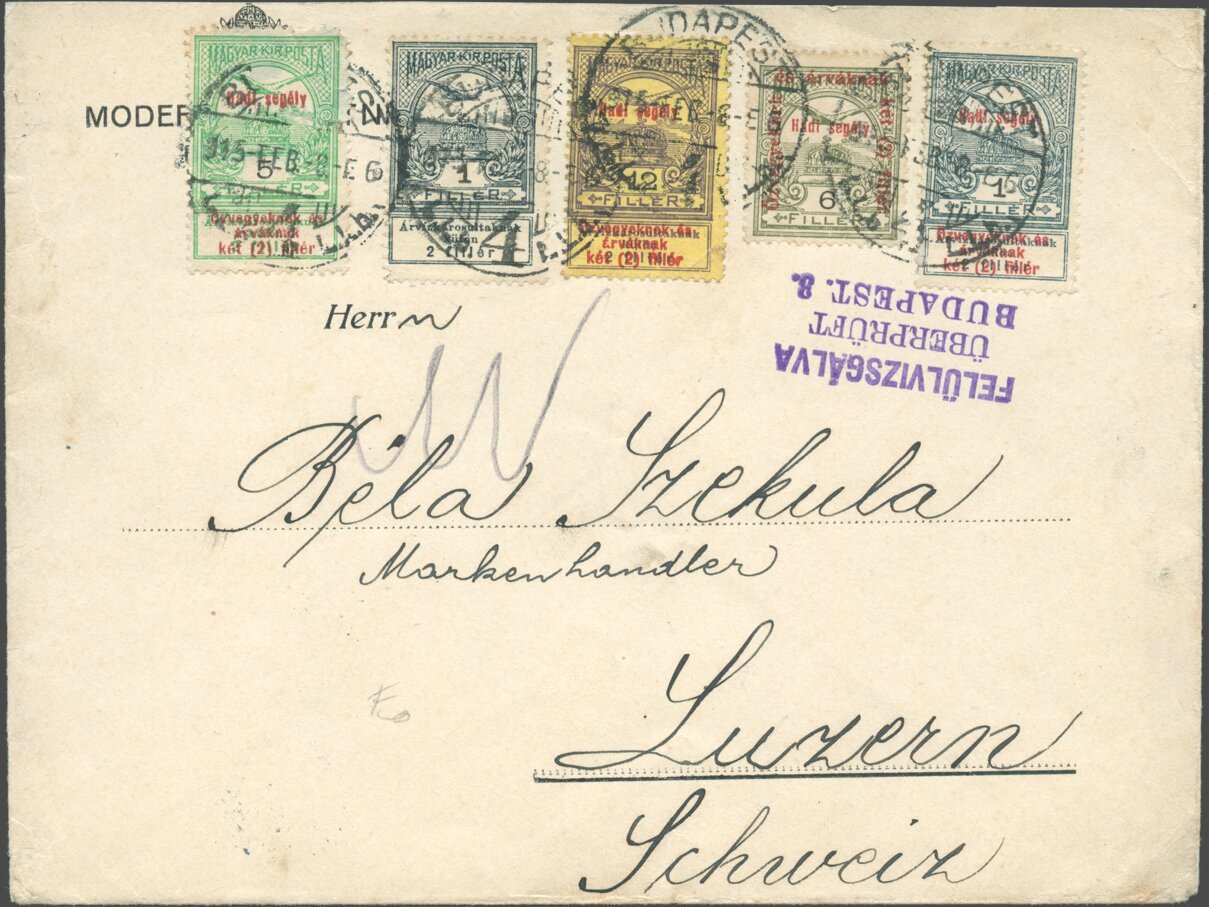 MAGYAR KIR. POSTA
Hadi segély
5
FILLÉR
Özvegyeknek és
árváknak
két (2) fillér
MAGYAR KIR. POSTA
1
FILLÉR
Árvízkárosultaknak
külön
2 fillér
MAGYAR KIR. POSTA
Hadi segély
12
FILLÉR
Özvegyeknek és
árváknak
két (2) fillér
és árváknak
Özvegyeknek
két (2) fillér
Hadi segély
6
FILLÉR
MAGYAR KIR. POSTA
Hadi segély
1
FILLÉR
Özvegyeknek és
árváknak
két (2) fillér
BUDAPEST
915 FEB. -8 - E 6
MODER
Herrn
FELÜLVIZSGÁLVA
ÜBERPRÜFT
BUDAPEST. 8.
Béla Szekula
Markenhandler
Luzern
Schweiz